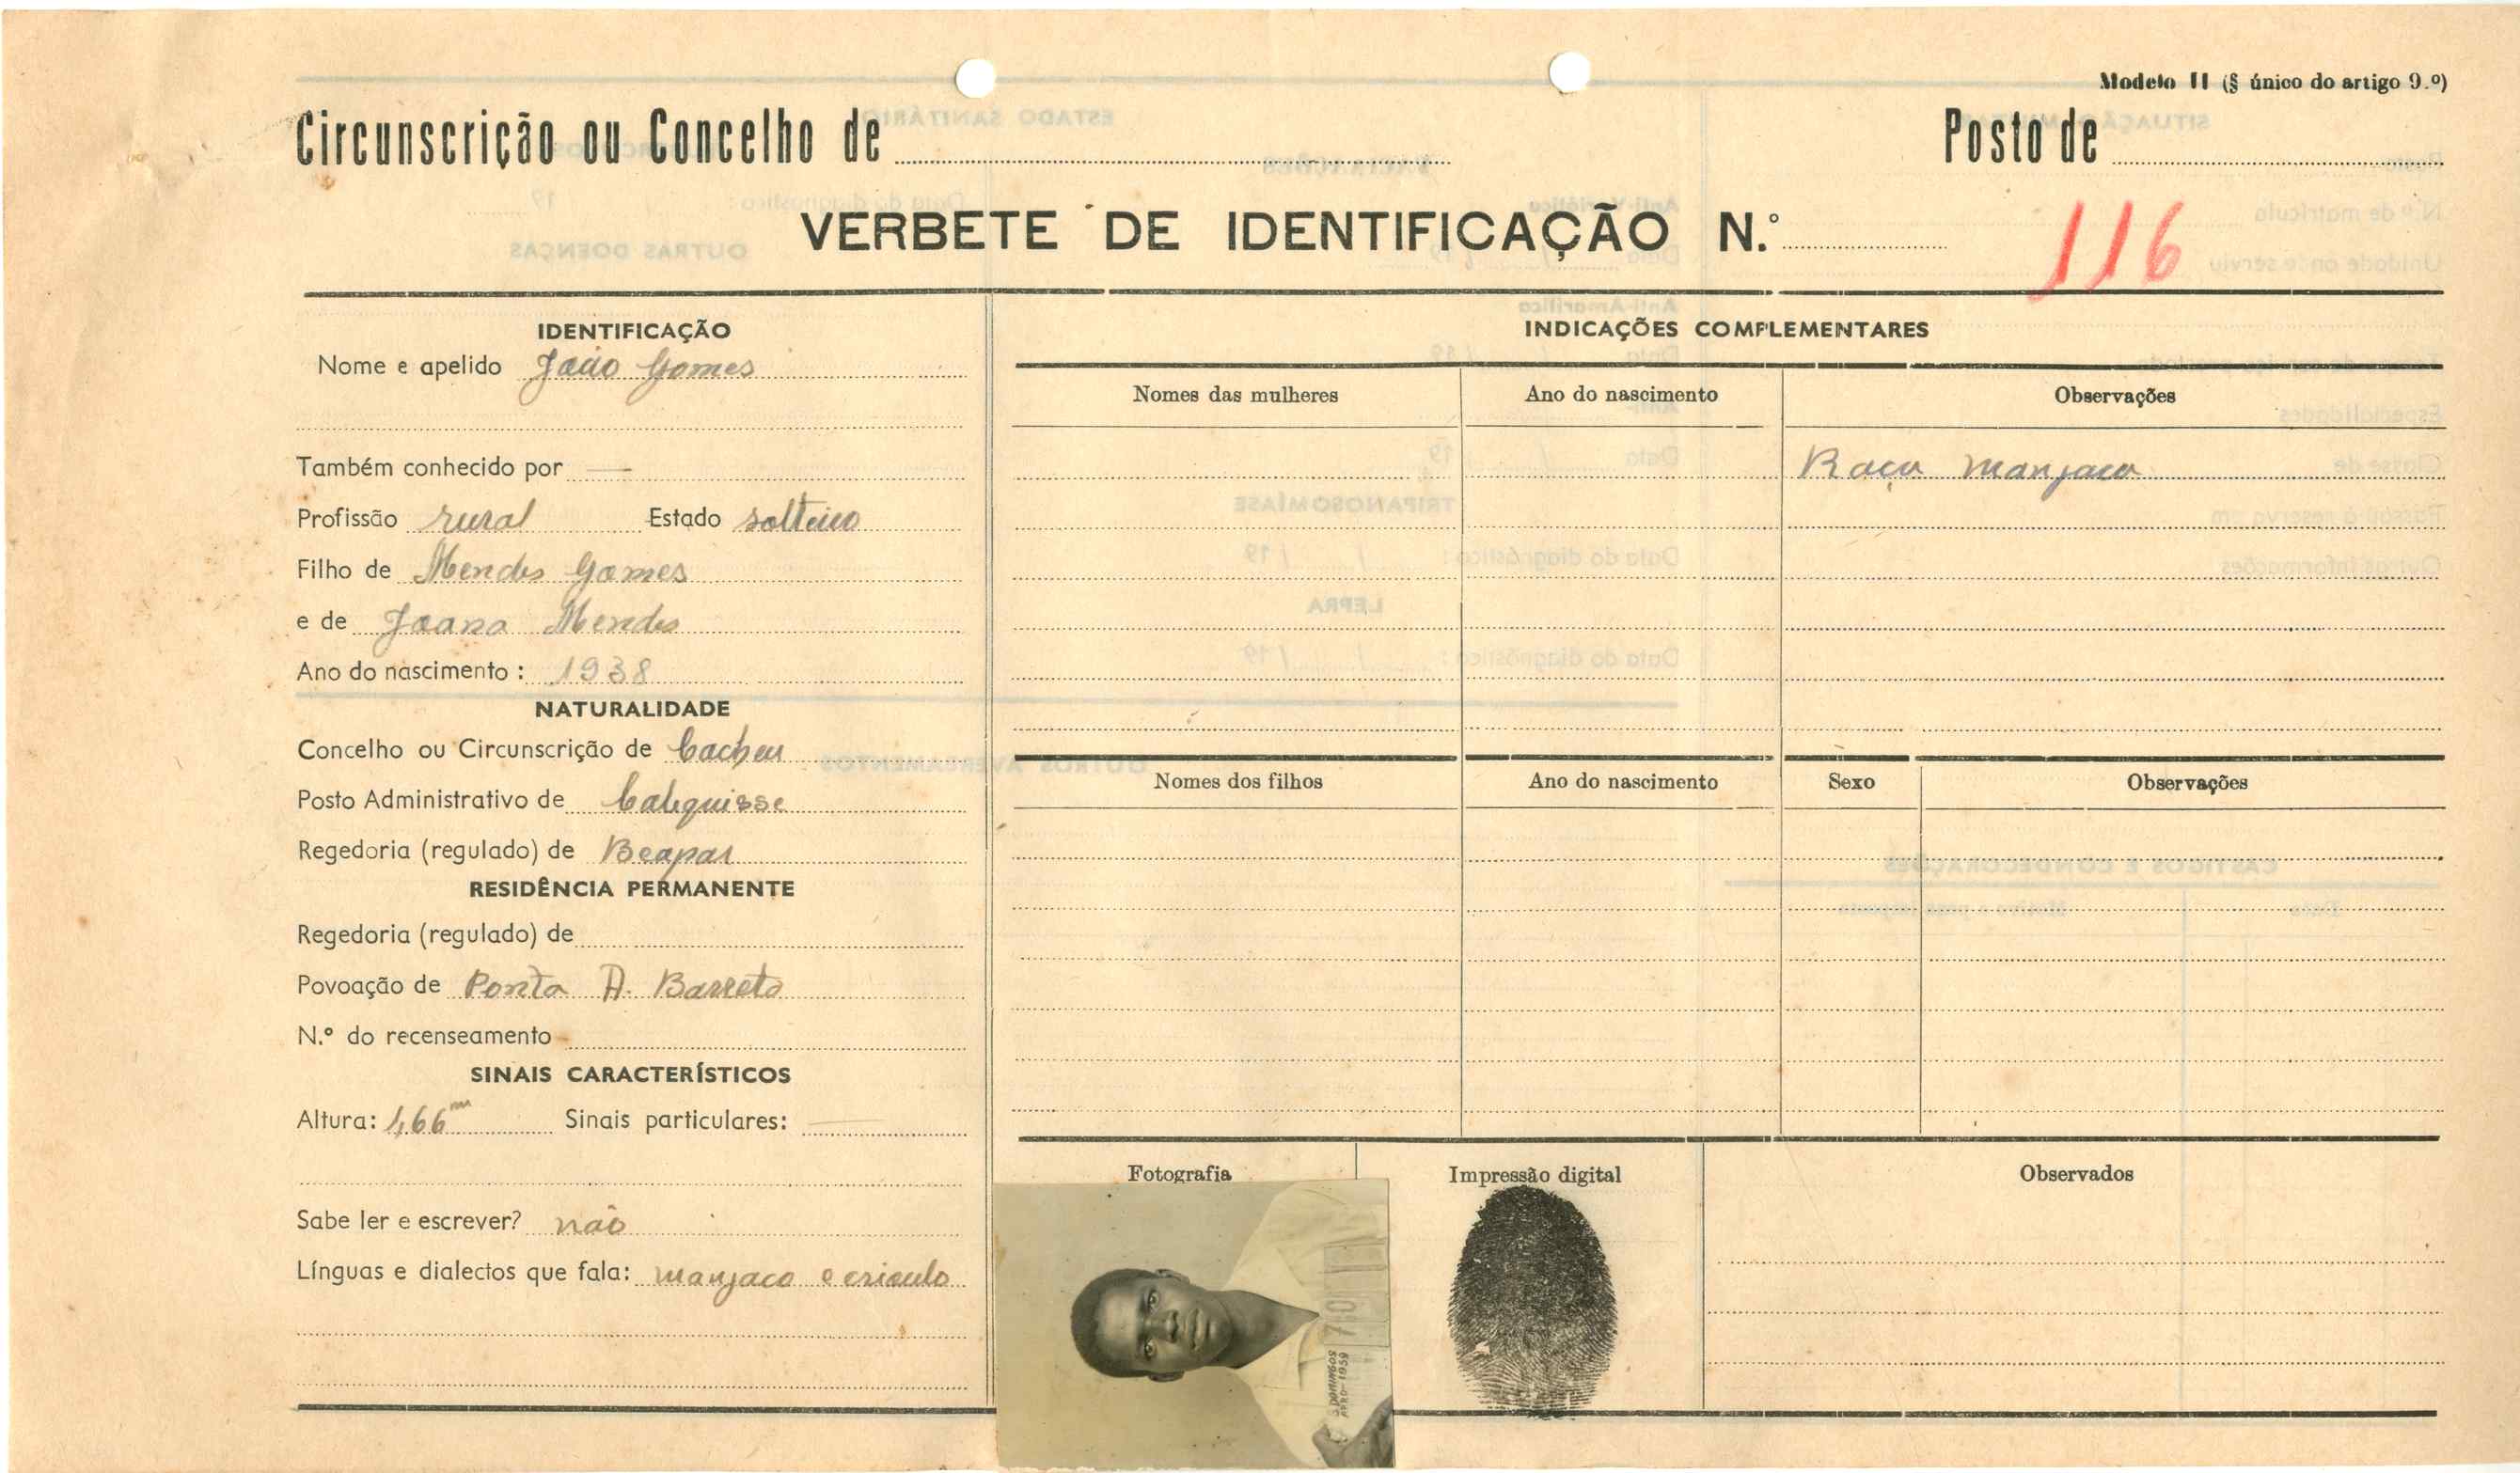 Modelo II (§ único do artigo 9.º)
Circunscrição ou Concelho de Posto de
VERBETE DE IDENTIFICAÇÃO N.º 116
IDENTIFICAÇÃO
Nome e apelido João Gomes
Também conhecido por —
Profissão rural Estado solteiro
Filho de Mendes Gomes
e de Joana Mendes
Ano do nascimento : 1938
NATURALIDADE
Concelho ou Circunscrição de Cacheu
Posto Administrativo de Calequisse
Regedoria (regulado) de Beapar
RESIDÊNCIA PERMANENTE
Regedoria (regulado) de
Povoação de Ponta A. Barreto
N.º do recenseamento
SINAIS CARACTERÍSTICOS
Altura: 1,66m Sinais particulares: —
Sabe ler e escrever? não
Línguas e dialectos que fala: manjaco e crioulo
INDICAÇÕES COMPLEMENTARES
Nomes das mulheres Ano do nascimento Observações
Raça manjaca
Nomes dos filhos Ano do nascimento Sexo Observações
Fotografia Impressão digital Observados
S. DOMINGOS
1959